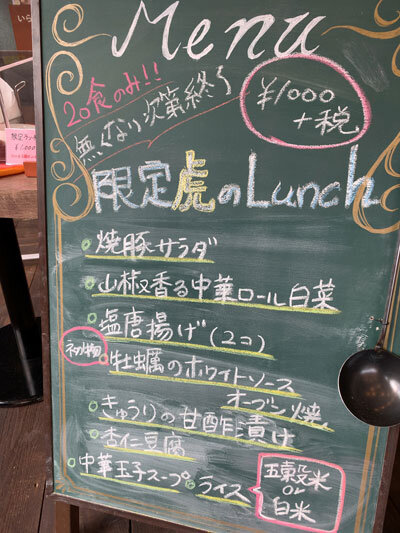 Menu
20食のみ!!
無くなり次第終り
¥1000
+税
限定虎のLunch
焼豚サラダ
山椒香る中華ロール白菜
塩唐揚げ(2コ)
初物
牡蠣のホワイトソース
オーブン焼
きゅうりの甘酢漬け
杏仁豆腐
中華玉子スープ
ライス
五穀米
or
白米